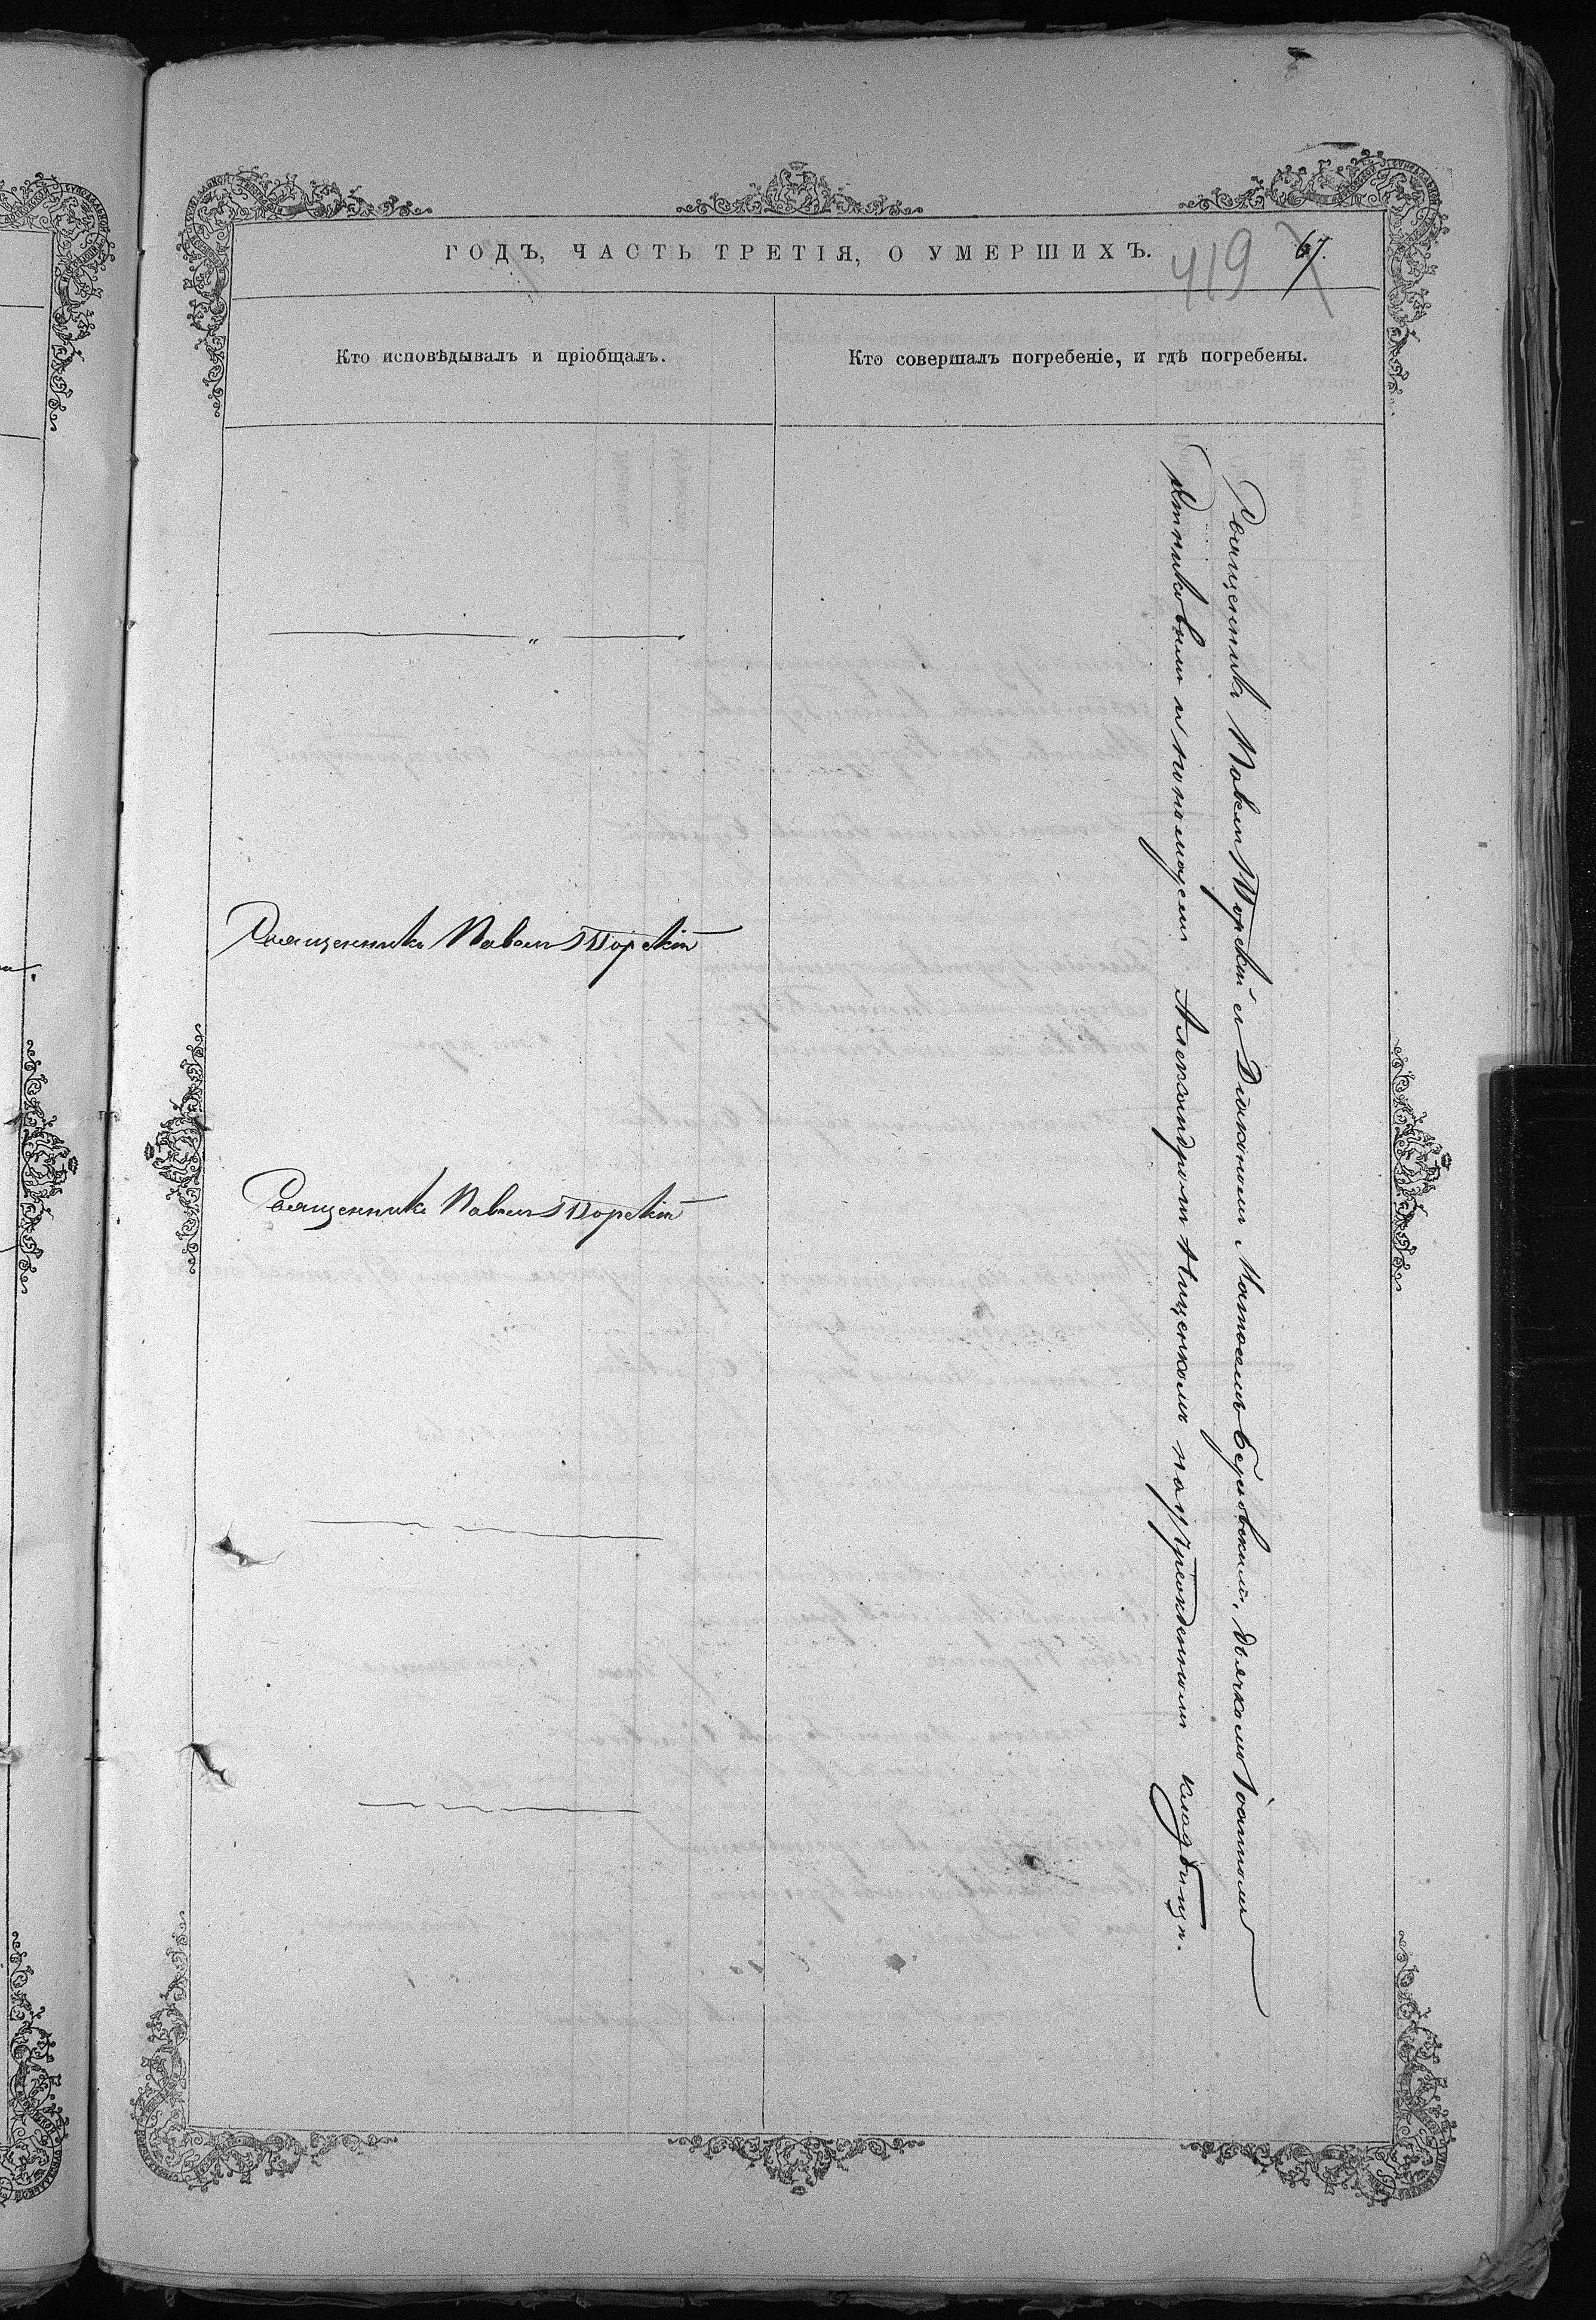 ГОДЪ, ЧАСТЬ ТРЕТІЯ, О УМЕРШИХЪ.
419
67.
Кто исповѣдывалъ и пріобщалъ.
Кто совершалъ погребеніе, и гдѣ погребены.
Священникъ Павелъ Торскій
Священникъ Павелъ Торскій
Священникъ Павелъ Торскій съ Діакономъ Дьячкомъ Іоанномъ
и пономаремъ Александромъ Нищенкомъ на учрежденномъ кладбищѣ.